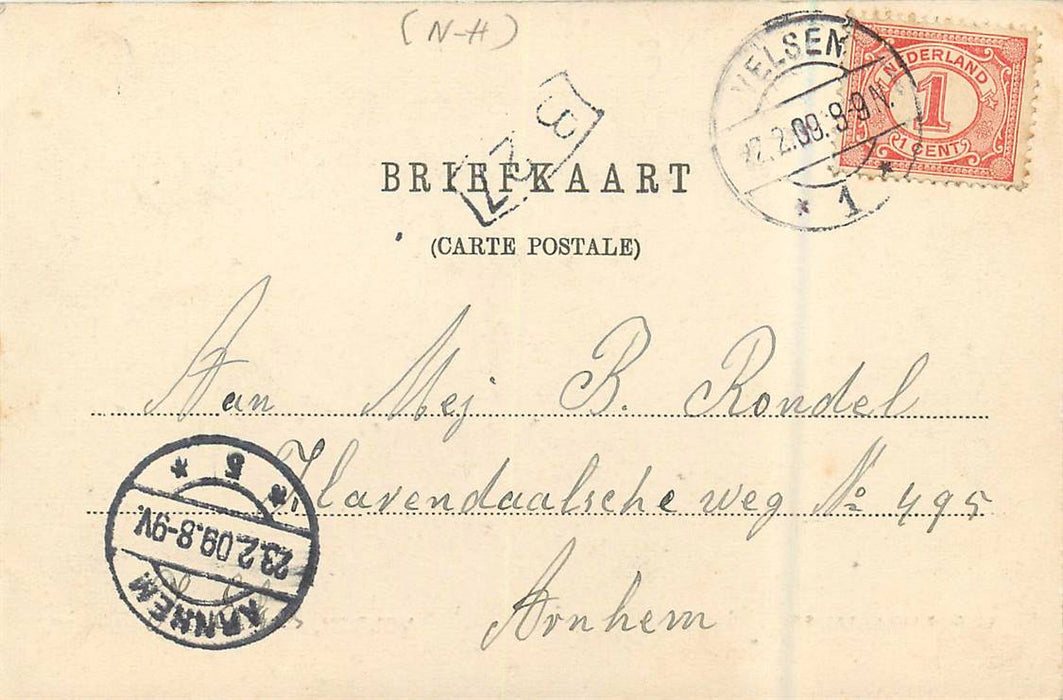 (N-H)
NEDERLAND
1
1 CENT
VELSEN
2.2.09.8-9N.
1
BRIEFKAART
(CARTE POSTALE)
Aan Mej B. Rondel
Klarendaalsche weg No 495
Arnhem
5
23.2.09.8-9V.
ARNHEM